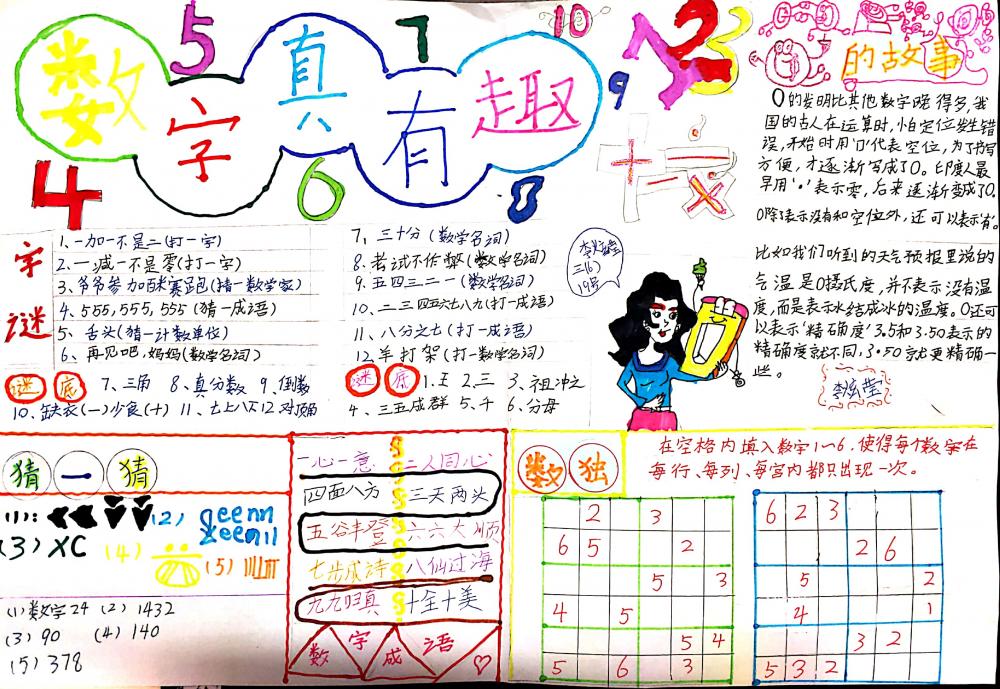 数字真有趣
5
7
10
4
6
8
9
123
的故事
0的发明比其他数字晚得多,我
国的古人在运算时,怕定位发生错
误,开始时用"口"代表空位,为了书写
方便,才逐渐写成了0。印度人最
早用"•"表示零,后来逐渐变成了0.
0除了表示没有和空位外,还可以表示有。
比如我们听到的天气预报里说的
气温是0摄氏度,并不表示没有温
度,而是表示水结成冰的温度。0还可
以表示精确度"3.5和3.50表示的
精确度就不同,3.50就更精确一
些。
字谜
1、一加一不是二(打一字)
2、一减一不是零(打一字)
3、爷爷参加百米赛跑(猜一数学家)
4、555,555,555(猜一成语)
5、舌头(猜一计数单位)
6、再见吧,妈妈(数学名词)
7、三十分(数学名词)
8、考试不作弊(数学名词)
9、五四三二一(数学名词)
10、二三四五六七八九(打一成语)
11、八分之七(打一成语)
12、羊打架(打一数学名词)
三(6)
19号
谜底
7、三角 8、真分数 9、倒数
10、缺衣(一)少食(十) 11、七上八下12、对顶角
谜底
1、王 2、三 3、祖冲之
4、三五成群 5、千 6、分母
猜一猜
(1):
(2)
(3)XC
(4)
(5)
(1)数字24 (2)1432
(3)90 (4)140
(5)378
一心一意 二人同心
四面八方 三天两头
五谷丰登 六六大顺
七步成诗 八仙过海
九九归真 十全十美
数字成语
数独
在空格内填入数字1~6,使得每个数字在
每行、每列、每宫内都只出现一次。
2 3
6 5 2
5 3
4 5
5 4
5 6 3
6 2 3
2 6
5 2
4 1
3 2
5 3 2